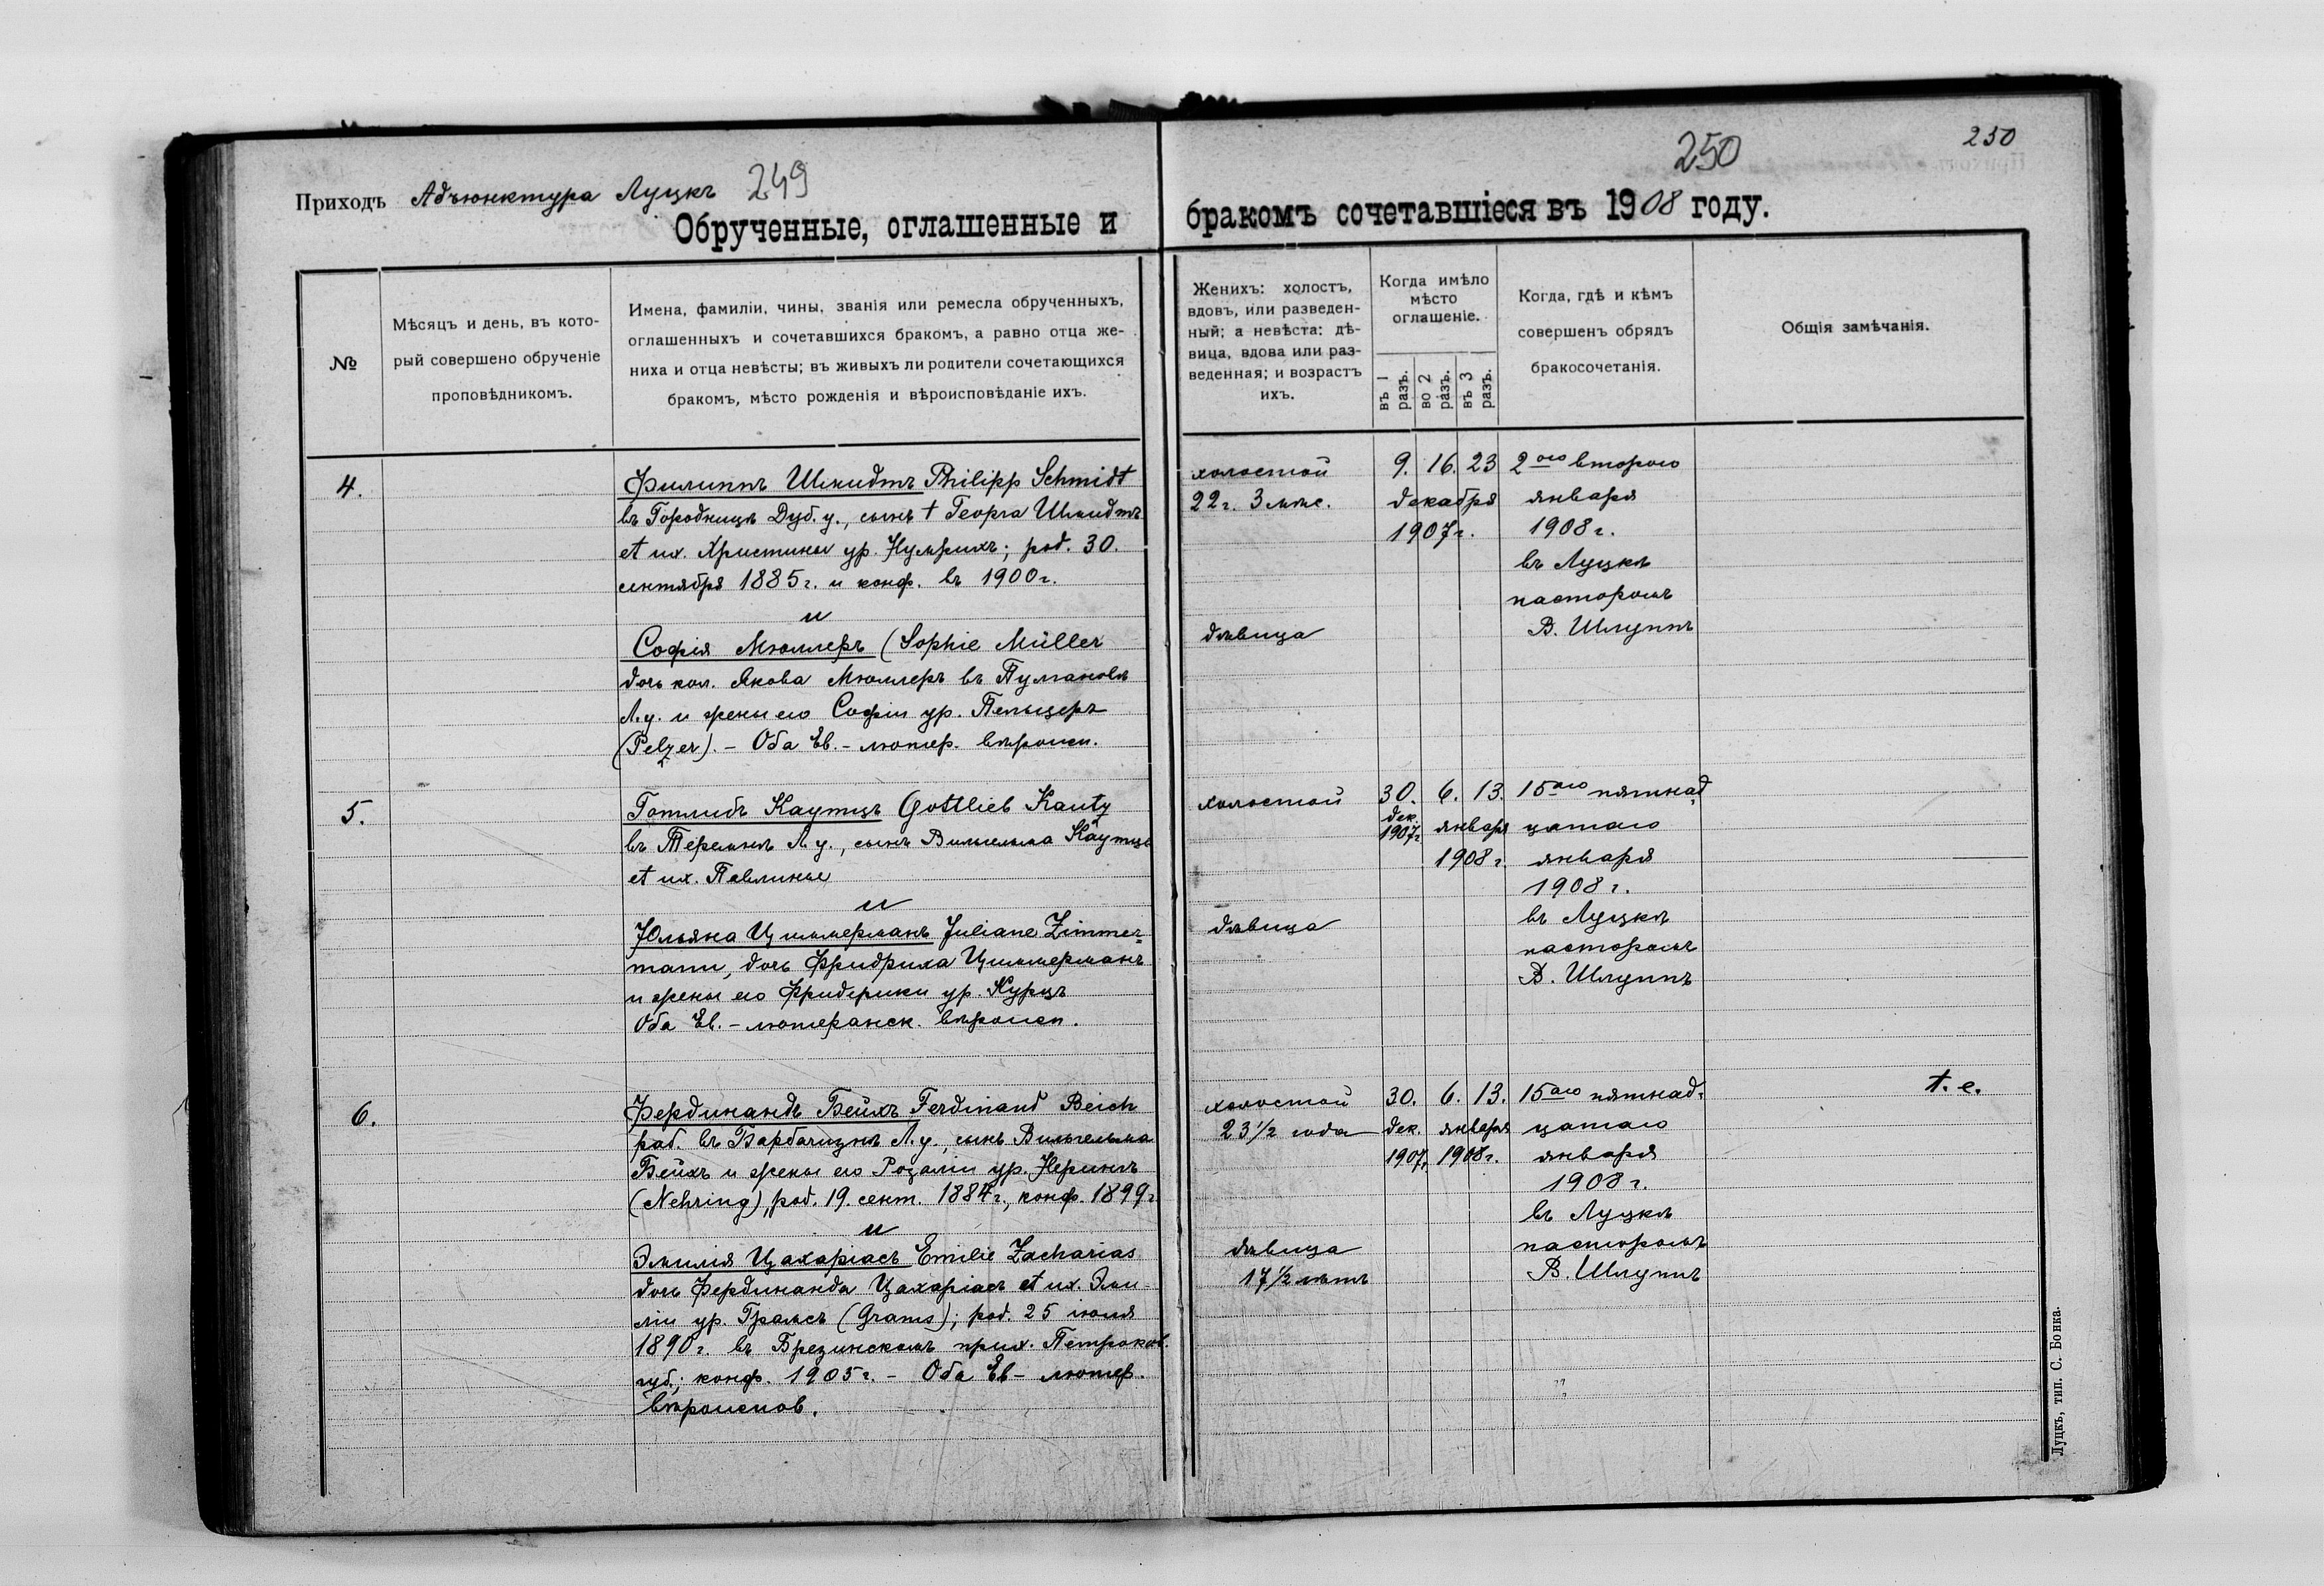 Приходъ Адъюнктура Луцкъ 249
Обрученные, оглашенные и
№
Мѣсяцъ и день, въ кото-
рый совершено обрученіе
проповѣдникомъ.
Имена, фамиліи, чины, званія или ремесла обрученныхъ,
оглашенныхъ и сочетавшихся бракомъ, а равно отца же-
ниха и отца невѣсты; въ живыхъ ли родители сочетающихся
бракомъ, мѣсто рожденія и вѣроисповѣданіе ихъ.
4.
Филиппъ Шмидтъ Philipp Schmidt
въ Городницѣ Дуб. у., сынъ † Георга Шмидтъ
et ux. Христины ур. Нумрихъ; род. 30.
сентября 1885 г. и конф. въ 1900 г.
и
Софія Мюллеръ (Sophie Müller
дочь кол. Якова Мюллеръ въ Пулгановѣ
Л. у. и жены его Софіи ур. Пельцеръ
(Pelzer). – Оба Ев. – лютер. вѣроисп.
5.
Готлибъ Каутцъ Gottlieb Kautz
въ Теремнѣ Л. у., сынъ Вильгельма Каутцъ
et ux. Павлины
и
Юльяна Циммерманъ Juliane Zimmer-
mann, дочь Фридриха Циммерманъ
и жены его Фридерики ур. Курцъ
Оба Ев. – лютеранск. вѣроисп.
6.
Фердинандъ Бейхъ Ferdinand Beich
раб. въ Барбачизнѣ Л. у., сынъ Вильгельма
Бейхъ и жены его Розаліи ур. Нерингъ
(Nehring), род. 19. сент. 1884 г., конф. 1899 г.
и
Эмилія Цахаріасъ Emilie Zacharias
дочь Фердинанда Цахаріасъ et ux. Эми-
ліи ур. Грамсъ (Grams); род. 25 іюня
1890 г. въ Брезинскомъ прих. Петроков.
губ.; конф. 1905 г. – Оба Ев – лютер.
вѣроиспов.
250
250
бракомъ сочетавшіеся въ 1908 году.
Женихъ: холостъ,
вдовъ, или разведен-
ный; а невѣста: дѣ-
вица, вдова или раз-
веденная; и возрастъ
ихъ.
Когда имѣло
мѣсто
оглашеніе.
въ 1 разъ.
во 2 разъ.
въ 3 разъ.
Когда, гдѣ и кѣмъ
совершенъ обрядъ
бракосочетанія.
Общія замѣчанія.
холостой
22 г. 3 мѣс.
дѣвица
9. 16. 23
декабря
1907 г.
2 ого второго
января
1908 г.
въ Луцкѣ
пасторомъ
В. Шлуппъ
холостой
дѣвица
30. 6. 13.
дек. января
1907 г.
1908 г.
15 аго пятнад
цатаго
января
1908 г.
въ Луцкѣ
пасторомъ
В. Шлуппъ
холостой
23 1/2 года
дѣвица
17 1/2 лѣтъ
30. 6. 13.
дек. января
1907. 1908 г.
15 аго пятнад-
цатаго
января
1908 г.
въ Луцкѣ
пасторомъ
В. Шлуппъ
t. e.
Луцкъ, тип. С. Бонка.